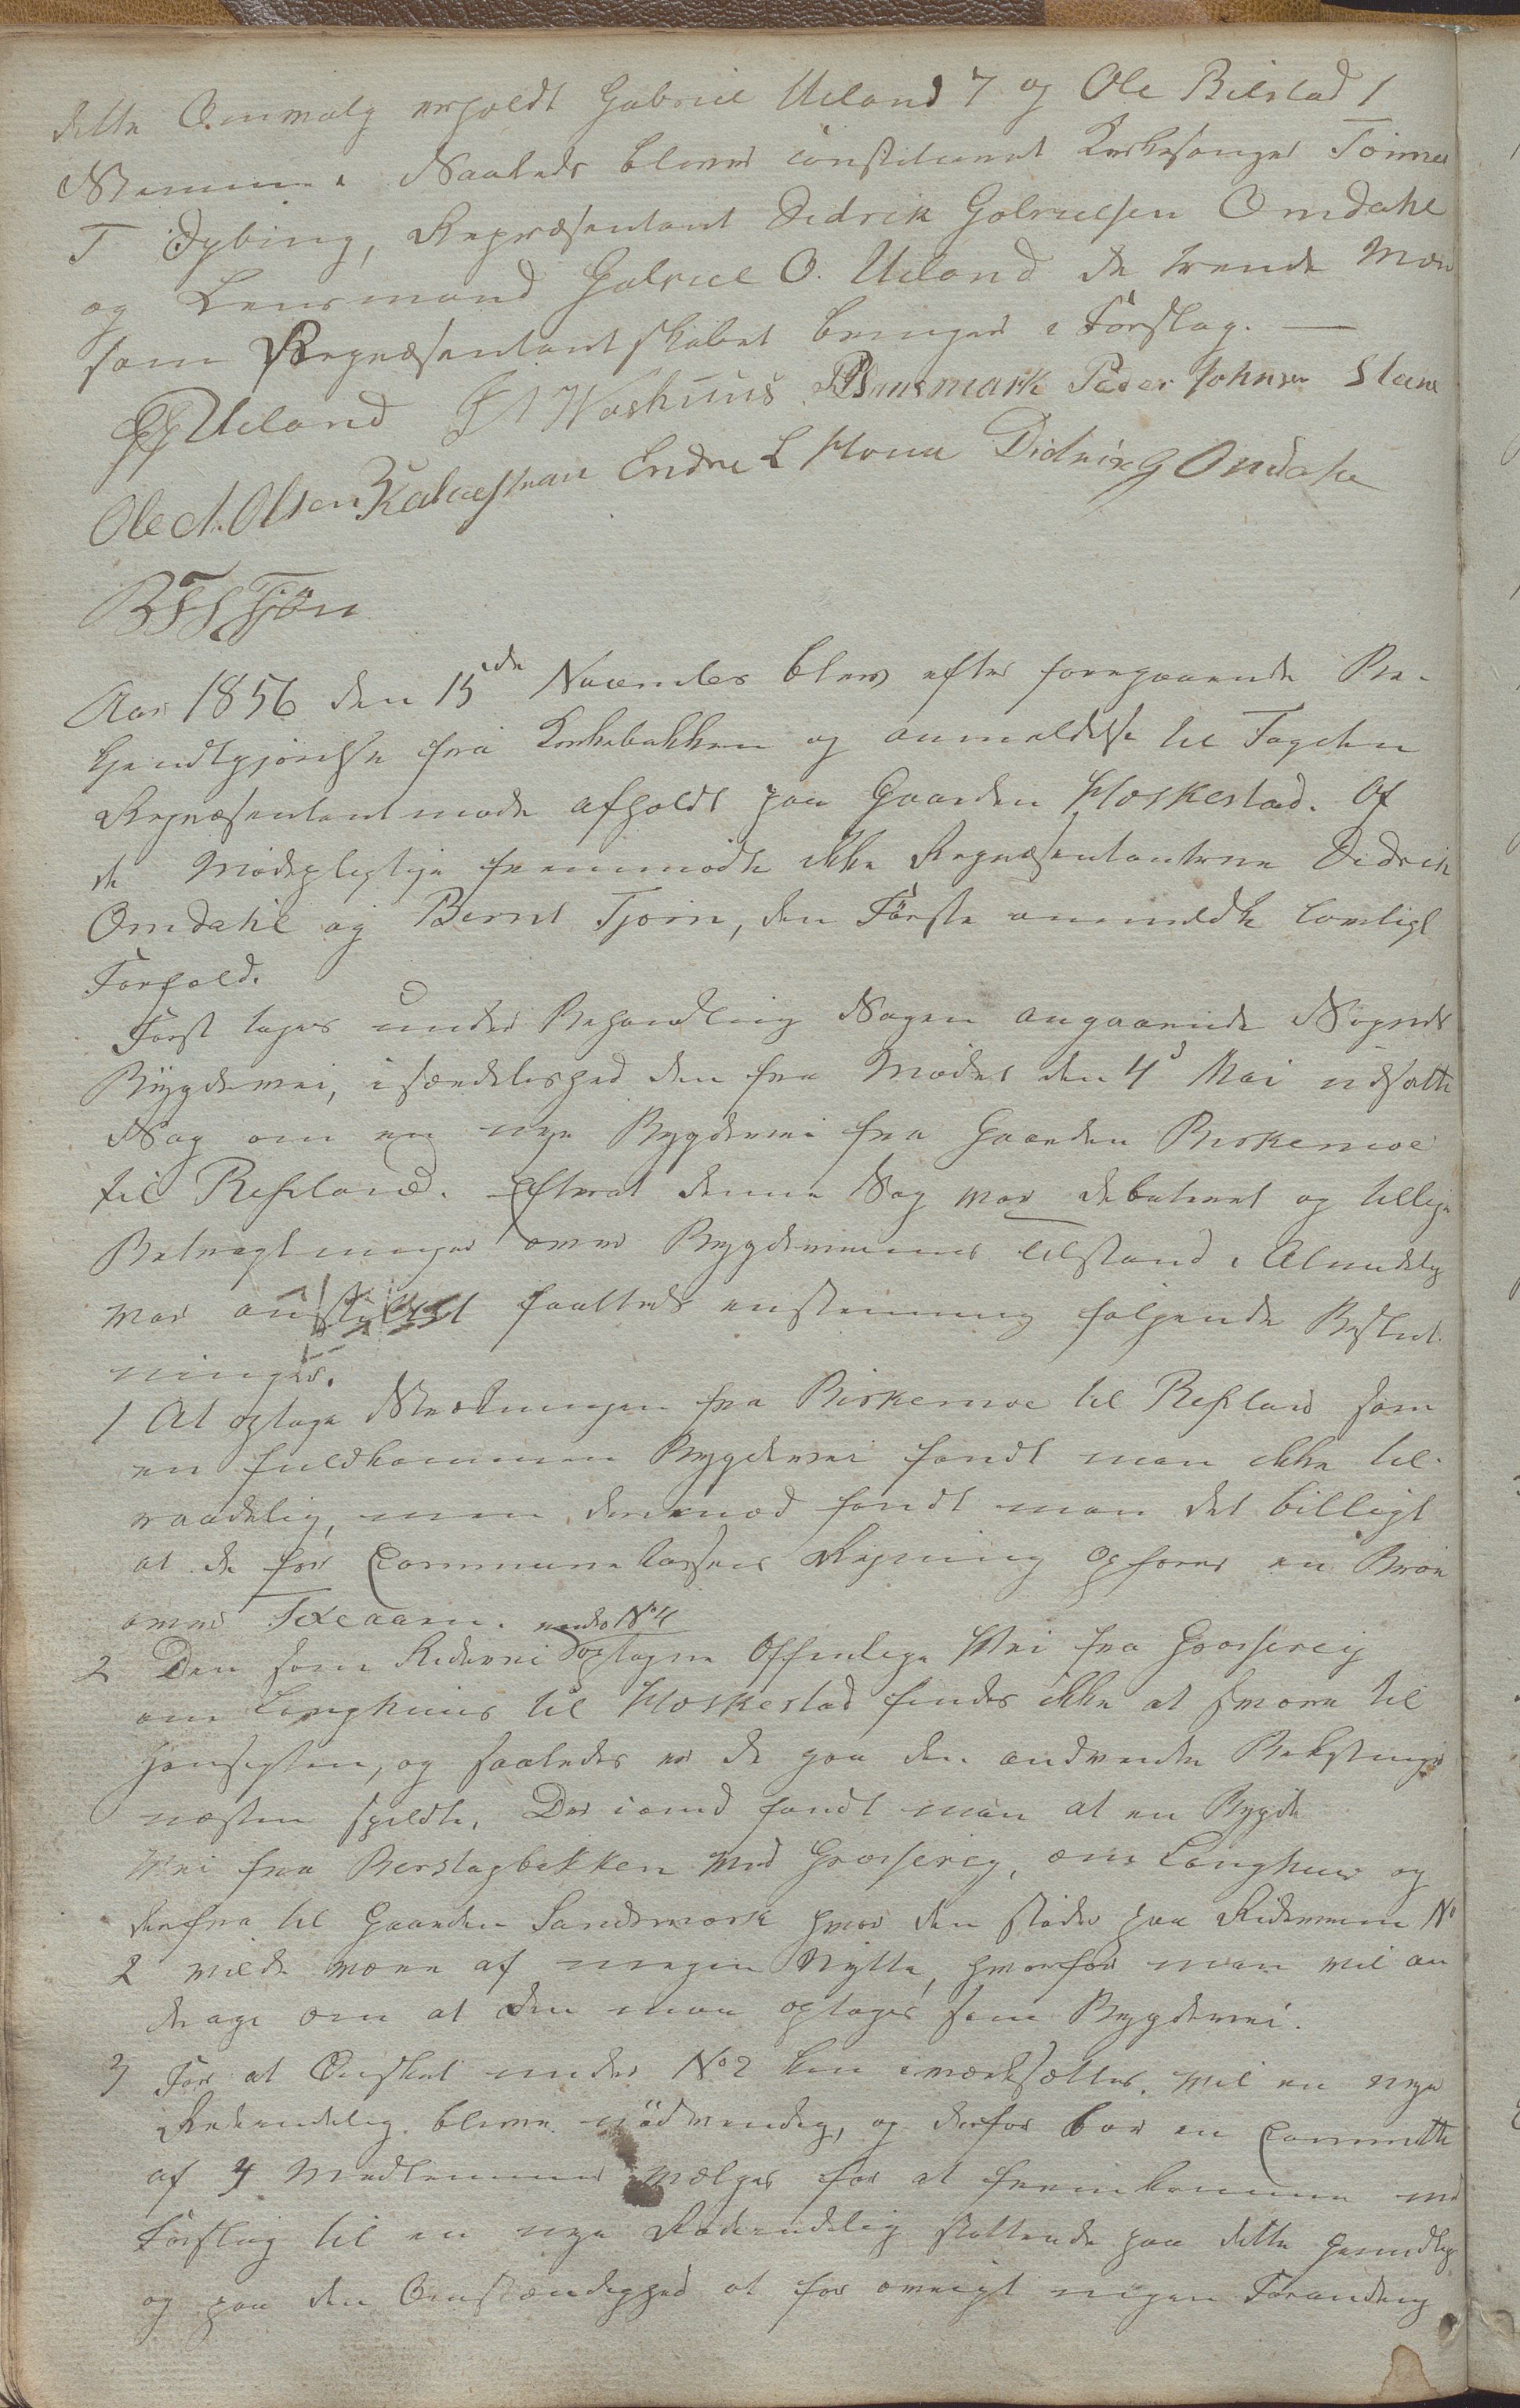 dette Omvalg erholdt Gabriel Ueland 7 og Ole Bilstad 1
Stemme. Saaledes bliver constitueret Kirkesanger Tönnes
T Dybing, Repræsentant Didrik Gabrielsen Omdahl
og Lensmand Gabriel O. Ueland de trende Mæn
som Repræsentantskabet bringer i Forslag. —
Ueland Woshuus Sinsmark Peder Johnsen Steene
Ole Ch. Olsen Endre L Hovu Didrix G Omdahl
B T S Tjön
Aar 1856 den 15de November blev efter foregaaende Be-
kjendtgjörelse fra Kirkebakken og anmeldelse til Fogden
Repræsentantmöde afholdt paa Gaarden Hæskestad. Af
de Mödepligtige fremmödte ikke Repræsentanterne Didrik
Omdahl og Bernt Tjörn, den Förste anmeldte lovligt
Forfald.
Först toges under Behandling Sagen angaaende Sognets
Bÿgdevei, isærdeleshed den fra Mödet den 4d Mai udsatte
Sag om en nye Bygdevei fra Gaarden Birkemoe
til Refsland. Efterat denne Sag var debateret og tillige
Betragtninger over Bygdeveienes tilstand i Almindelig
var anstillet fattedes enstemmig fölgende Beslut-
ninger.
1 At optage Strækningen fra Birkemoe til Refsland som
en fuldkommen Bygdevei fandt man ikke til-
raadelig, men derimod fandt man det billigt
at de for Communekassens Regning opförer en Broe
over Texeaaen. under No 4
2 Den som Ridevei optagne Offentlige Vei fra Grosfereig
om Langhuus til Hæskestad findes ikke at svare til
Hensigten, og saaledes er de paa den andvendte Bekostninger
næsten spildte. Derimod fandt man at en Bygde
Vei fra Berslagbakken ved Grosfereig, om Langhuus og
derfra til Gaarden Sandsmark hvor den stöder paa Rideveien No
2 vilde være af megen Nytte, hvorfor man vil an
drage om at den maa optages som Bygdevei.
3 For at Önsket under No 2 kan iværksættes, vil en nye
Rodeindelig blive nödvendig, og derfor bör en Committe
af 4 Medlemmer vælges for at fremkomme med
Forslag til en nye Rodeindelig stöttende paa dette Grundlag
og paa den Omstændighed at for övrigt ingen Forandring